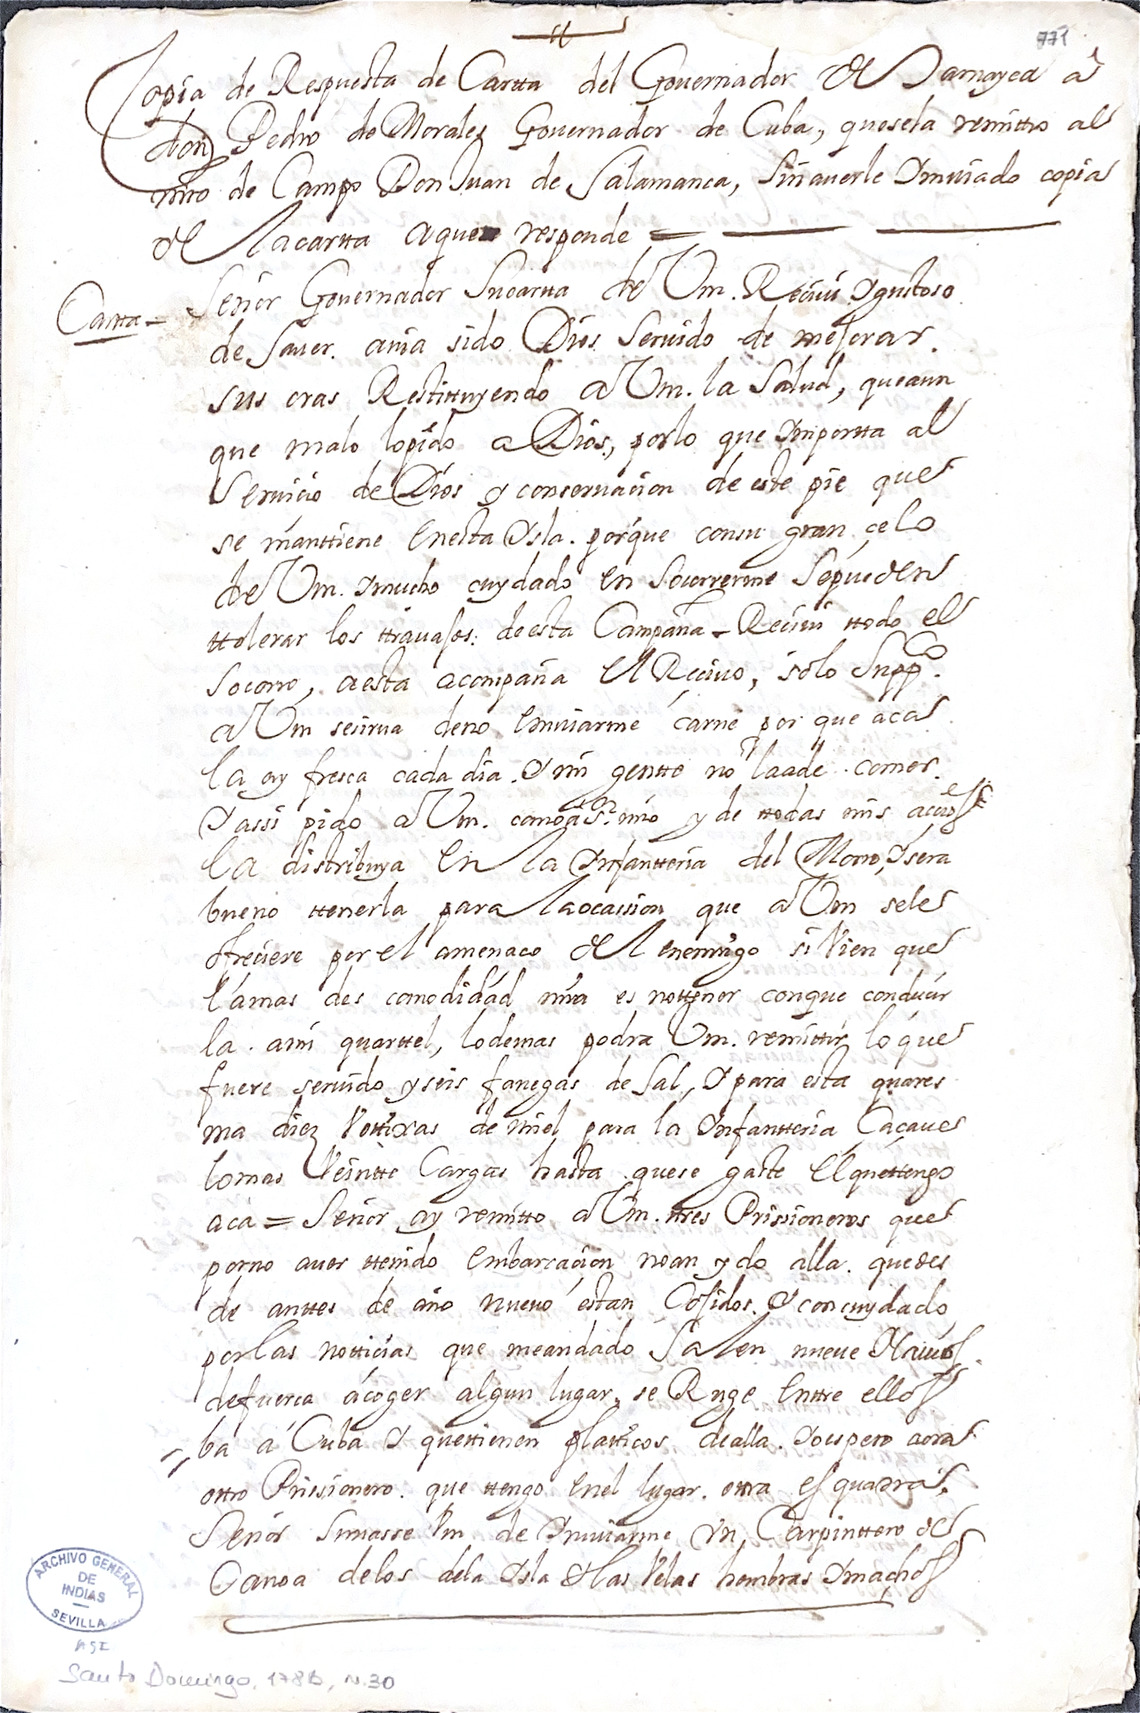 771
Copia de Respuesta de Cartta del Governador de Jamayca a
don Pedro de Morales Governador de Cuba, quesela remitto al
mro de Campo Don Juan de Salamanca, sin auerle Ymuiado copia
de la cartta aque responde
Cartta
Señor Governador Sucartta de Vm. Reciui Ygustoso
de sauer. auia sido Dios seruido de mejorar.
sus oras Restittuyendo a Vm. la salud, queaun
que malo lopido a Dios, porlo que Ymportta al
seruicio de Dios y conseruacion de este pie que
se manttiene Enesta Ysla. porque consu gran çelo
de Vm. Ymucho cuydado en socorrerme sepueden
ttolerar los ttrauajos: deesta Campaña - Reciui ttodo el
socorro, aesta acompaña el Reciuo, solo suppco.
a Vm sesirua deno Enuiarme carne por que aca
la ay fresca cada dia. Y mi gentte no laade comer.
Y assi pido a Vm. comoa sr. mio y de ttodas mis accioes
la distribuya En la Ynfantteria del Morro, Ysera
bueno ttenerla para laocassion que a Vm sele
ofreciere por el amenaco del enemigo si bien que
lamas des comodidad mia es nottener conque conducir
la. ami quarttel, lodemas podra Vm. remittir loque
fuere seruido yseis fanegas de sal, Ypara esta quares
ma diez bottixas de miel para la Ynfantteria Caçaue
lomas Veintte Cargas hasta quese gaste Elquettengo
aca = Señor ay remitto a Vm. ttres Prissioneros que
porno auer ttenido embarcacion noan ydo alla. quedes
de anttes de año nueuo estan Cojidos. Y concuydado
porlas notticias que meandado salen nueue Nauios
defuerca acoger algun lugar, se Ruge Enttre ellos
ba a Cuba Y quettienen platticos dealla. Yoespero aora
ottro Prissionero. que ttengo Enel lugar. ottra esquadra.
Señor simasse Vm de Ymuiarme Vn Carpinttero de
Canoa delos dela Ysla Ylas Velas hembras Ymachos
ARCHIVO GENERAL
DE
INDIAS
SEVILLA
AGI
Santo Domingo, 178B, N.30